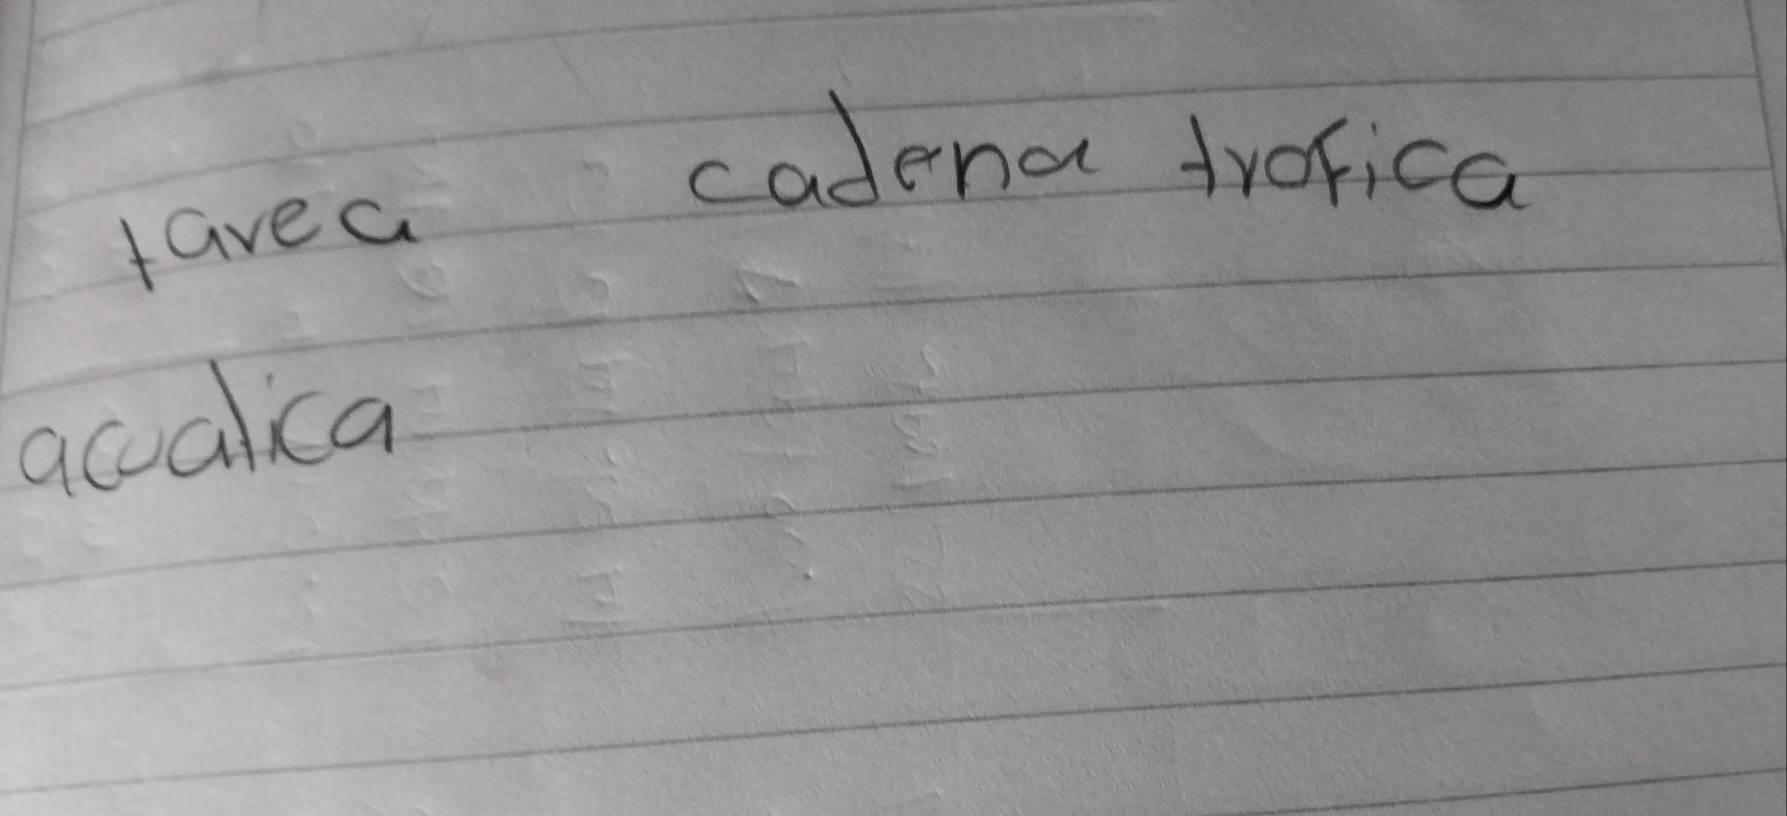 tarea cadena trofica
acuatica